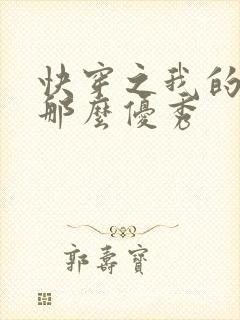 快穿之我的
那麼優秀
郭壽寶